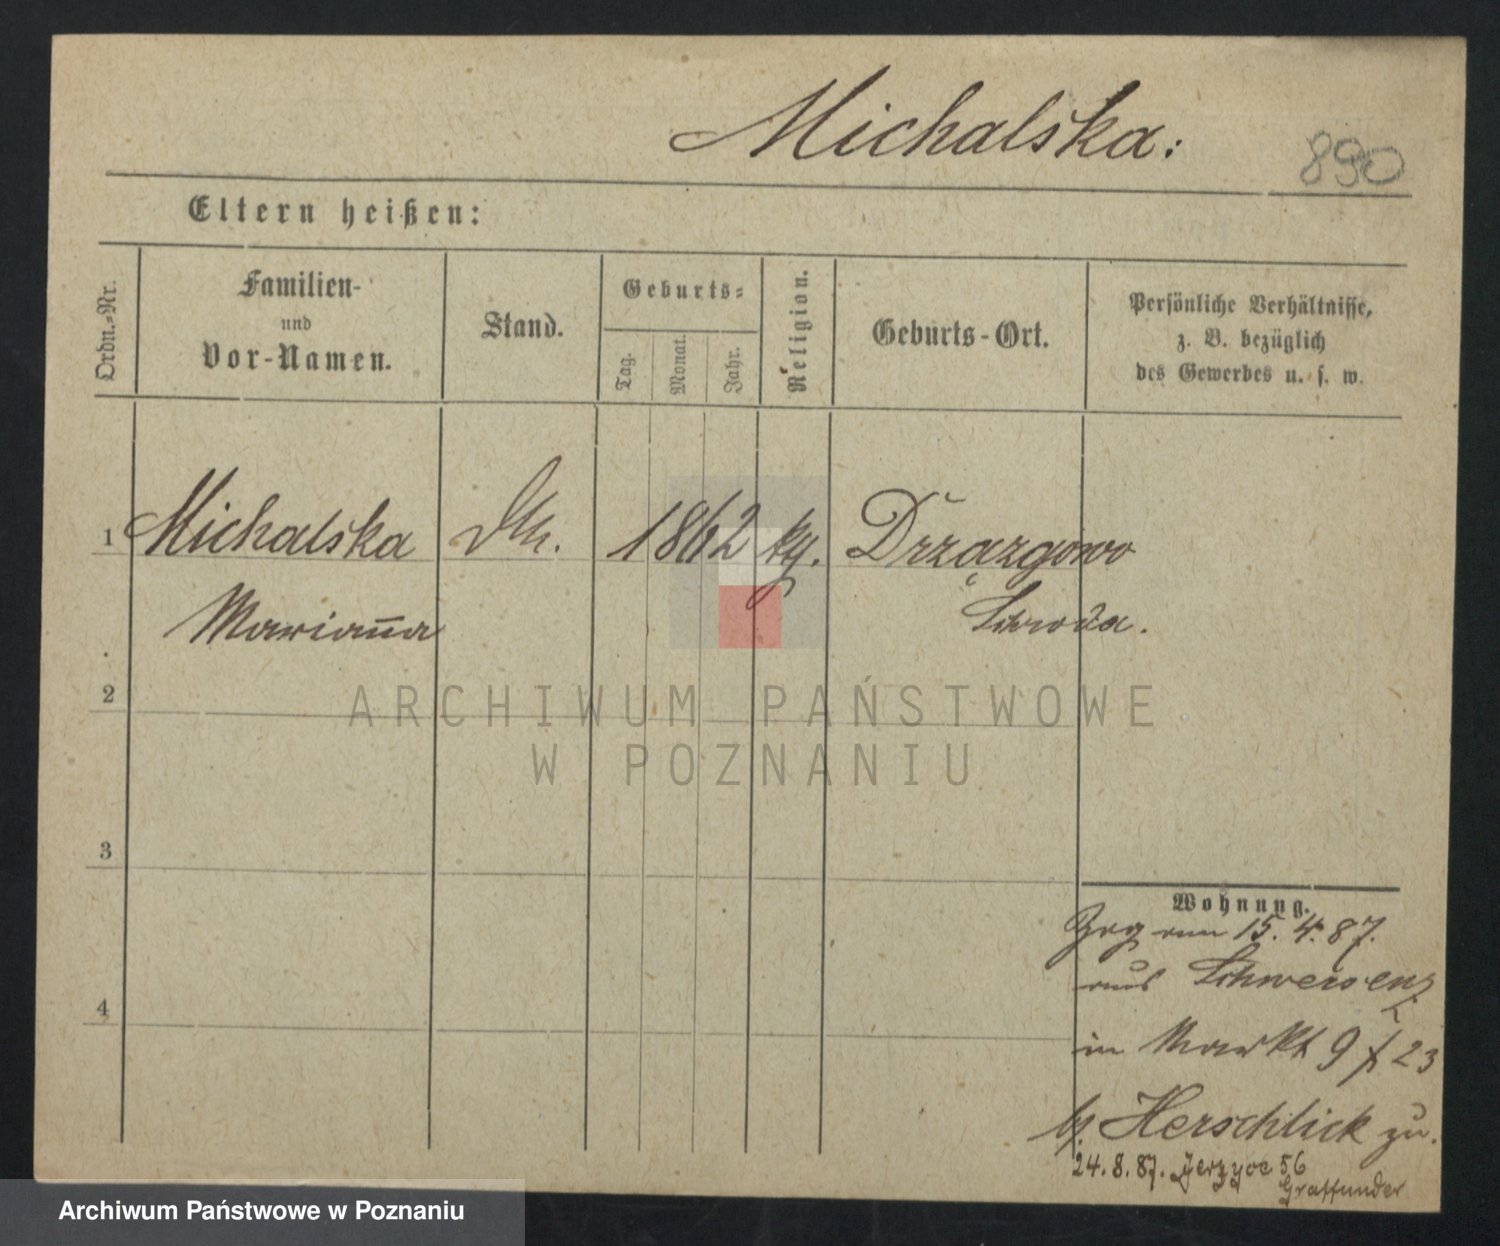 Michalska:
890
Eltern heißen:
Ordn.-Nr.
Familien-
und
Vor-Namen.
Stand.
Geburts-
Tag.
Monat.
Jahr.
Religion.
Geburts-Ort.
Persönliche Verhältnisse,
z. B. bezüglich
des Gewerbes u. s. w.
1 Michalska 1862 Drzązgowo
Marianna Schroda.
2
ARCHIWUM PAŃSTWOWE
W POZNANIU
3
Wohnung.
15. 4. 87.
aus Schwersenz
4
in Markt 9 / 23
Herschlick zu.
24. 8. 87. 56
Graffunder
Archiwum Państwowe w Poznaniu